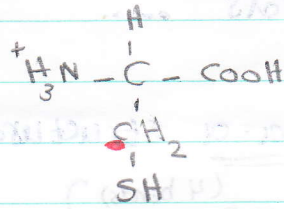 H
+H3N - C - COOH
CH2
SH